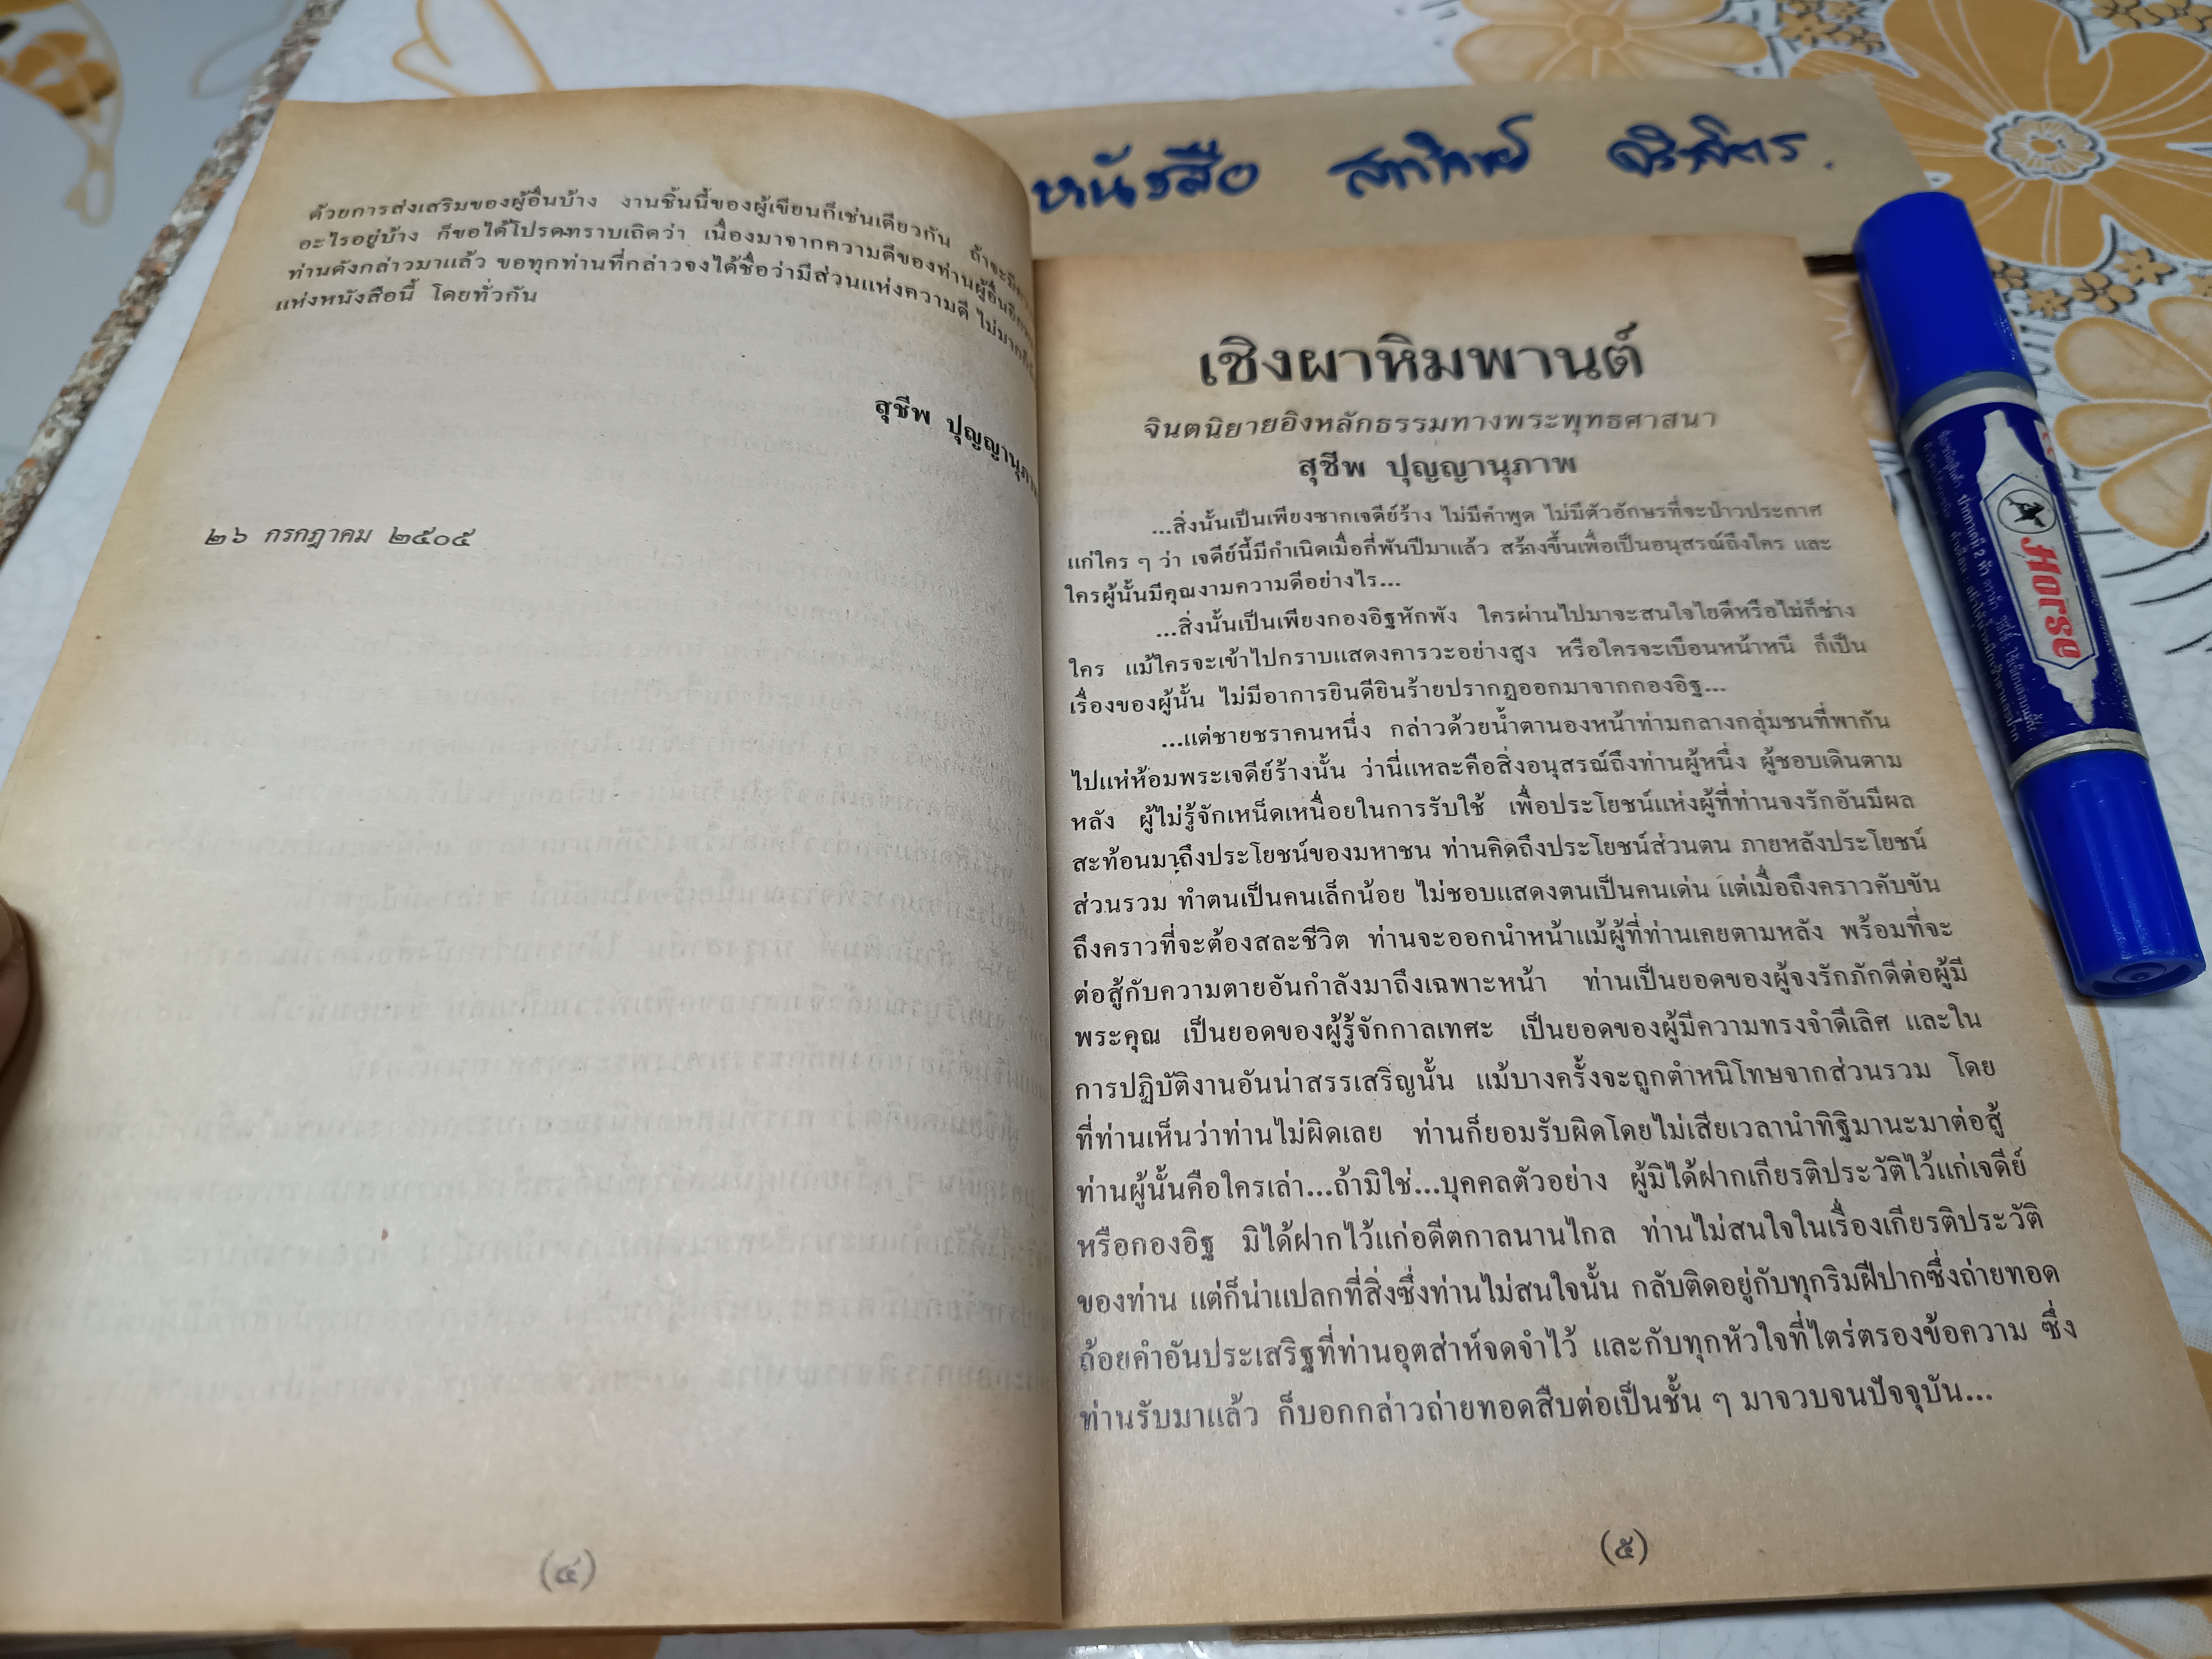 หนังสือ
ด้วยการส่งเสริมของผู้อื่นบ้าง งานชิ้นนี้ของผู้เขียนก็เช่นเดียวกัน ถ้าจะมี
อะไรอยู่บ้าง ก็ขอได้โปรดทราบเถิดว่า เนื่องมาจากความดีของท่านผู้อื่นอีก
ท่านดังกล่าวมาแล้ว ขอทุกท่านที่กล่าวจงได้ชื่อว่ามีส่วนแห่งความดี ไม่มาก
แห่งหนังสือนี้ โดยทั่วกัน
สุชีพ ปุญญานุภา
๒๖ กรกฎาคม ๒๕๐๕
(๔)
เชิงผาหิมพานต์
จินตนิยายอิงหลักธรรมทางพระพุทธศาสนา
สุชีพ ปุญญานุภาพ
...สิ่งนั้นเป็นเพียงซากเจดีย์ร้าง ไม่มีคำพูด ไม่มีตัวอักษรที่จะป่าวประกาศ
แก่ใคร ๆ ว่า เจดีย์นี้มีกำเนิดเมื่อกี่พันปีมาแล้ว สร้างขึ้นเพื่อเป็นอนุสรณ์ถึงใคร และ
ใครผู้นั้นมีคุณงามความดีอย่างไร...
...สิ่งนั้นเป็นเพียงกองอิฐหักพัง ใครผ่านไปมาจะสนใจไยดีหรือไม่ก็ช่าง
ใคร แม้ใครจะเข้าไปกราบแสดงคารวะอย่างสูง หรือใครจะเบือนหน้าหนี ก็เป็น
เรื่องของผู้นั้น ไม่มีอาการยินดียินร้ายปรากฏออกมาจากกองอิฐ...
...แต่ชายชราคนหนึ่ง กล่าวด้วยน้ำตานองหน้าท่ามกลางกลุ่มชนที่พากัน
ไปแห่ห้อมพระเจดีย์ร้างนั้น ว่านี่แหละคือสิ่งอนุสรณ์ถึงท่านผู้หนึ่ง ผู้ชอบเดินตาม
หลัง ผู้ไม่รู้จักเหน็ดเหนื่อยในการรับใช้ เพื่อประโยชน์แห่งผู้ที่ท่านจงรักอันมีผล
สะท้อนมาถึงประโยชน์ของมหาชน ท่านคิดถึงประโยชน์ส่วนตน ภายหลังประโยชน์
ส่วนรวม ทำตนเป็นคนเล็กน้อย ไม่ชอบแสดงตนเป็นคนเด่น แต่เมื่อถึงคราวคับขัน
ถึงคราวที่จะต้องสละชีวิต ท่านจะออกนำหน้าแม้ผู้ที่ท่านเคยตามหลัง พร้อมที่จะ
ต่อสู้กับความตายอันกำลังมาถึงเฉพาะหน้า ท่านเป็นยอดของผู้จงรักภักดีต่อผู้มี
พระคุณ เป็นยอดของผู้รู้จักกาลเทศะ เป็นยอดของผู้มีความทรงจำดีเลิศ และใน
การปฏิบัติงานอันน่าสรรเสริญนั้น แม้บางครั้งจะถูกตำหนิโทษจากส่วนรวม โดย
ที่ท่านเห็นว่าท่านไม่ผิดเลย ท่านก็ยอมรับผิดโดยไม่เสียเวลานำทิฐิมานะมาต่อสู้
ท่านผู้นั้นคือใครเล่า...ถ้ามิใช่...บุคคลตัวอย่าง ผู้มิได้ฝากเกียรติประวัติไว้แก่เจดีย์
หรือกองอิฐ มิได้ฝากไว้แก่อดีตกาลนานไกล ท่านไม่สนใจในเรื่องเกียรติประวัติ
ของท่าน แต่ก็น่าแปลกที่สิ่งซึ่งท่านไม่สนใจนั้น กลับติดอยู่กับทุกริมฝีปากซึ่งถ่ายทอด
ถ้อยคำอันประเสริฐที่ท่านอุตส่าห์จดจำไว้ และกับทุกหัวใจที่ไตร่ตรองข้อความ ซึ่ง
ท่านรับมาแล้ว ก็บอกกล่าวถ่ายทอดสืบต่อเป็นชั้น ๆ มาจวบจนปัจจุบัน...
(๕)
Horse